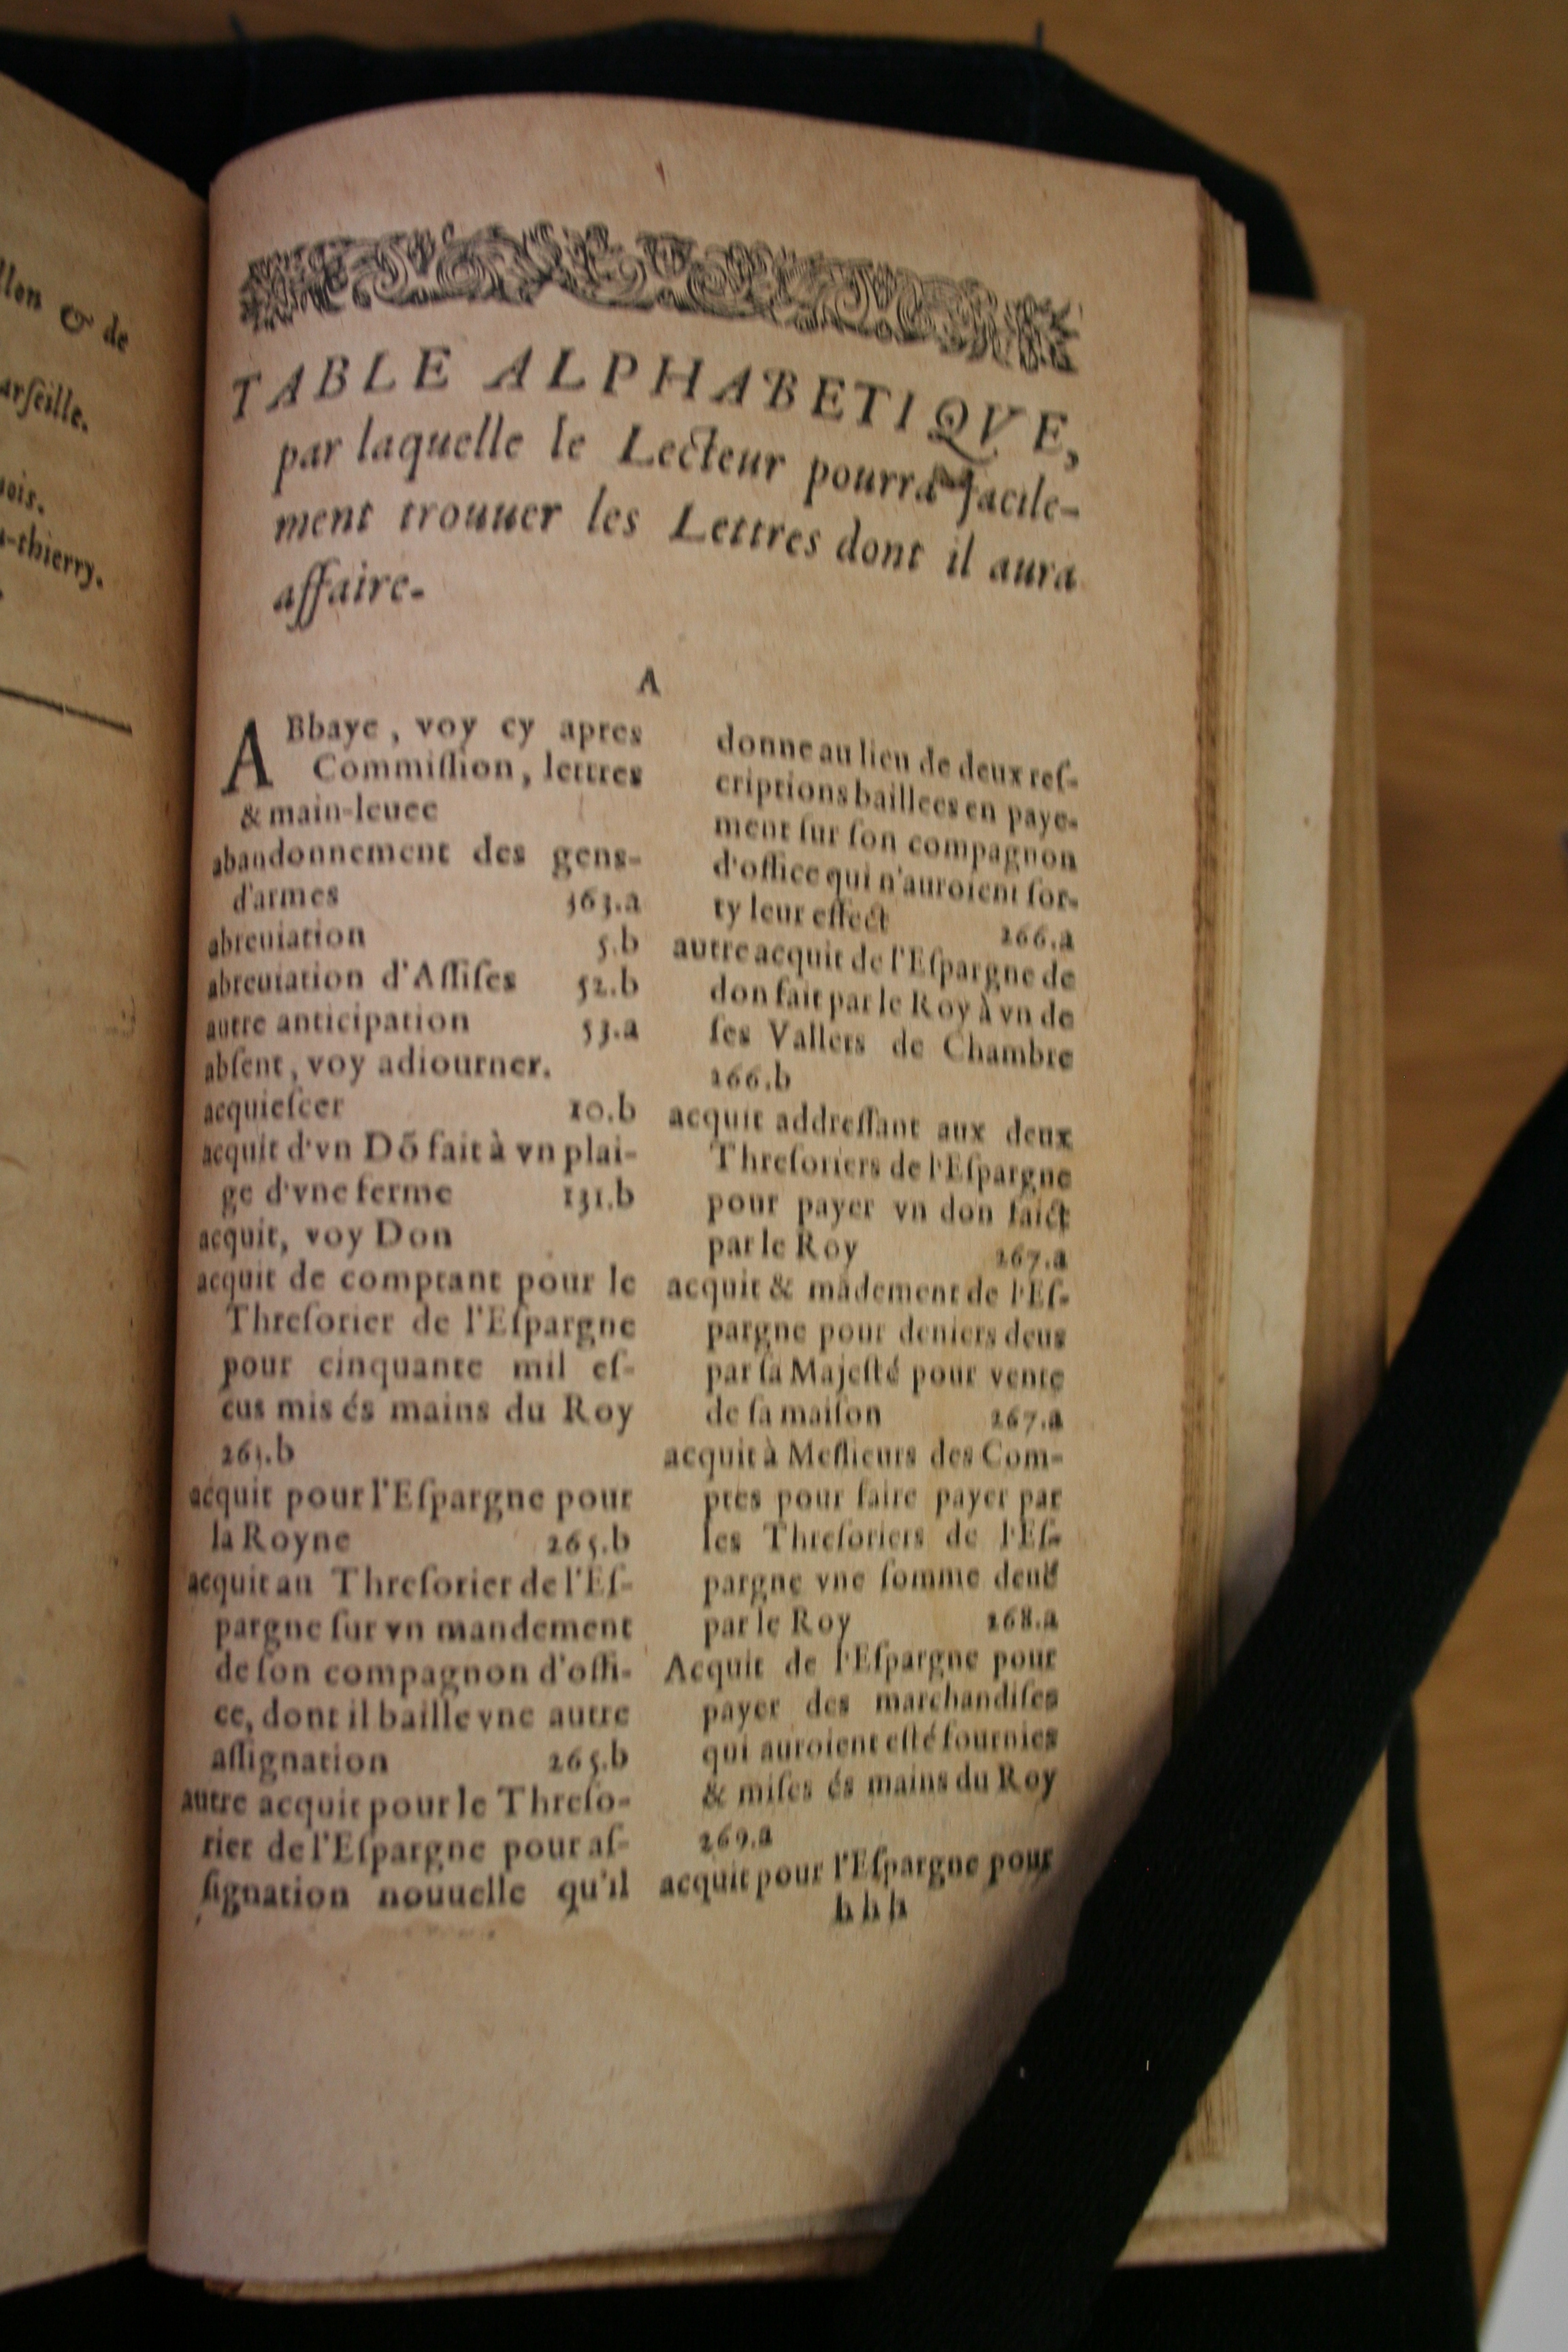 llon & de
arſeille.
nois.
u-thierry.
TABLE ALPHABETIQVE,
par laquelle le Lecteur pourra facile-
ment trouuer les Lettres dont il aura
affaire.
A
ABbaye, voy cy apres
Commiſſion, lettres
& main-leuee
abandonnement des gens-
d'armes 363.a
abreuiation 5.b
abreuiation d'Aſſiſes 52.b
autre anticipation 53.a
abſent, voy adiourner.
acquieſcer 10.b
acquit d'vn Dõ fait à vn plai-
ge d'vne ferme 131.b
acquit, voy Don
acquit de comptant pour le
Threſorier de l'Eſpargne
pour cinquante mil eſ-
cus mis és mains du Roy
265.b
acquit pour l'Eſpargne pour
la Royne 265.b
acquit au Threſorier de l'Eſ-
pargne ſur vn mandement
de ſon compagnon d'offi-
ce, dont il baille vne autre
aſſignation 265.b
autre acquit pour le Threſo-
rier de l'Eſpargne pour aſ-
ſignation nouuelle qu'il
donne au lieu de deux reſ-
criptions baillees en paye-
ment ſur ſon compagnon
d'office qui n'auroient ſor-
ty leur effect 266.a
autre acquit de l'Eſpargne de
don fait par le Roy à vn de
ſes Vallets de Chambre
266.b
acquit addreſſant aux deux
Threſoriers de l'Eſpargne
pour payer vn don faict
par le Roy 267.a
acquit & mãdement de l'Eſ-
pargne pour deniers deus
par ſa Majeſté pour vente
de ſa maiſon 267.a
acquit à Meſſieurs des Com-
ptes pour faire payer par
les Threſoriers de l'Eſ-
pargne vne ſomme deuë
par le Roy 268.a
Acquit de l'Eſpargne pour
payer des marchandiſes
qui auroient eſté fournies
& miſes és mains du Roy
269.a
acquit pour l'Eſpargne pour
hhh